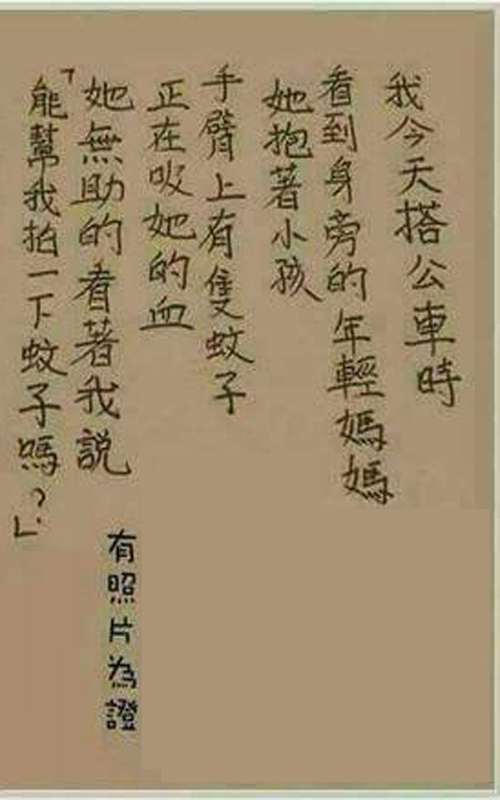 我今天搭公車時
看到身旁的年輕媽媽
她抱著小孩
手臂上有隻蚊子
正在吸她的血
她無助的看著我說
「能幫我拍一下蚊子嗎？」
有照片為證